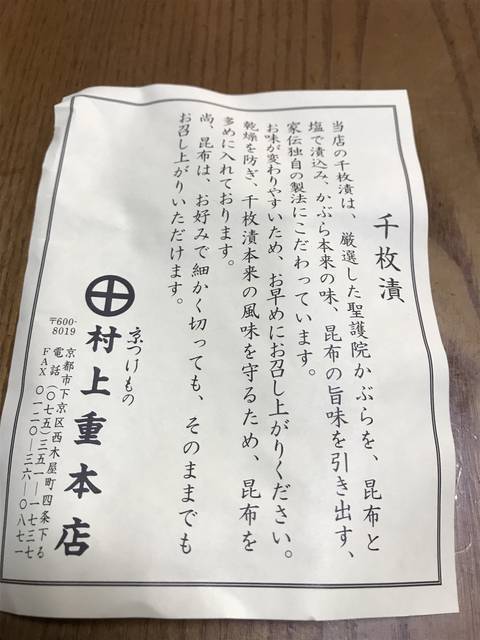 千枚漬
当店の千枚漬は、厳選した聖護院かぶらを、昆布と
塩で漬込み、かぶら本来の味、昆布の旨味を引き出す、
家伝独自の製法にこだわっています。
お味が変わりやすいため、お早めにお召し上がりください。
乾燥を防ぎ、千枚漬本来の風味を守るため、昆布を
多めに入れております。
尚、昆布は、お好みで細かく切っても、そのままでも
お召し上がりいただけます。
京つけもの
村上重本店
〒600-8019
京都市下京区西木屋町四条下る
電話(〇七五)三五一―一七三七
FAX 〇一二〇―三六―〇八七一